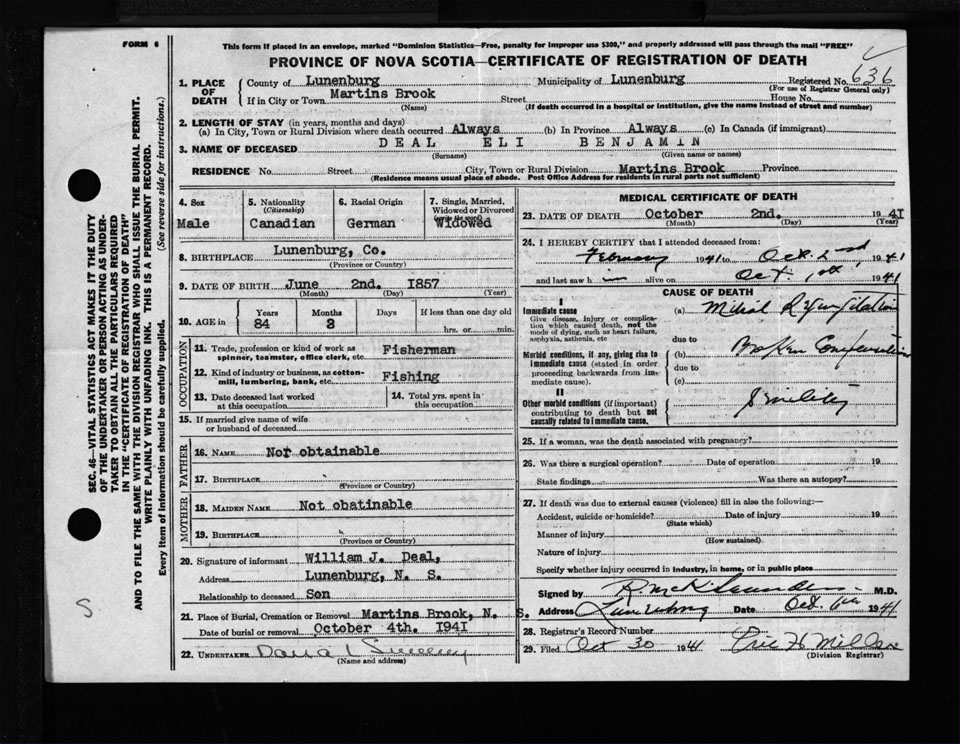 FORM 6
This form if placed in an envelope, marked "Dominion Statistics—Free, penalty for improper use $300," and properly addressed will pass through the mail "FREE"
PROVINCE OF NOVA SCOTIA—CERTIFICATE OF REGISTRATION OF DEATH
SEC. 46—VITAL STATISTICS ACT MAKES IT THE DUTY
OF THE UNDERTAKER OR PERSON ACTING AS UNDER-
TAKER TO OBTAIN ALL THE PARTICULARS REQUIRED
IN THE "CERTIFICATE OF REGISTRATION OF DEATH"
AND TO FILE THE SAME WITH THE DIVISION REGISTRAR WHO SHALL ISSUE THE BURIAL PERMIT.
WRITE PLAINLY WITH UNFADING INK. THIS IS A PERMANENT RECORD.
Every item of information should be carefully supplied. (See reverse side for instructions).
S
1. PLACE OF DEATH
County of Lunenburg Municipality of Lunenburg Registered No. 636
(For use of Registrar General only)
If in City or Town Martins Brook Street House No.
(Name) (If death occurred in a hospital or institution, give the name instead of street and number)
2. LENGTH OF STAY (in years, months and days)
(a) In City, Town or Rural Division where death occurred Always (b) In Province Always (c) In Canada (if immigrant)
3. NAME OF DECEASED DEAL ELI BENJAMIN
(Surname) (Given name or names)
RESIDENCE No. Street City, Town or Rural Division Martins Brook Province
(Residence means usual place of abode. Post Office Address for residents in rural parts not sufficient)
4. Sex
Male
5. Nationality
(Citizenship)
Canadian
6. Racial Origin
German
7. Single, Married,
Widowed or Divorced
Widowed
8. BIRTHPLACE Lunenburg, Co.
(Province or Country)
9. DATE OF BIRTH June 2nd. 1857
(Month) (Day) (Year)
10. AGE in Years Months Days If less than one day old
84 3 hrs. or min.
OCCUPATION
11. Trade, profession or kind of work as Fisherman
spinner, teamster, office clerk, etc.
12. Kind of industry or business, as cotton- Fishing
mill, lumbering, bank, etc.
13. Date deceased last worked
at this occupation
14. Total yrs. spent in
this occupation
15. If married give name of wife
or husband of deceased
FATHER
16. NAME Not obtainable
17. BIRTHPLACE
(Province or Country)
MOTHER
18. MAIDEN NAME Not obatinable
19. BIRTHPLACE
(Province or Country)
20. Signature of informant William J. Deal,
Address Lunenburg, N. S.
Relationship to deceased Son
21. Place of Burial, Cremation or Removal Martins Brook, N. S.
Date of burial or removal October 4th. 1941
22. UNDERTAKER
(Name and address)
MEDICAL CERTIFICATE OF DEATH
23. DATE OF DEATH October 2nd. 1941
(Month) (Day) (Year)
24. I HEREBY CERTIFY that I attended deceased from:
February 1941 to Oct. 2nd 1941
and last saw h im alive on Oct. 1st 1941
CAUSE OF DEATH
I
Immediate cause
Give disease, injury or complica-
tion which caused death, not the
mode of dying, such as heart failure,
asphyxia, asthenia, etc
(a) Mitral Regurgitation
due to
Morbid conditions, if any, giving rise to
immediate cause (stated in order
proceeding backwards from im-
mediate cause).
(b) Broken Compensation
due to
(c)
II
Other morbid conditions (if important)
contributing to death but not
causally related to immediate cause.
Senility
25. If a woman, was the death associated with pregnancy?
26. Was there a surgical operation? Date of operation 19
State findings Was there an autopsy?
27. If death was due to external causes (violence) fill in also the following:—
Accident, suicide or homicide? Date of injury 19
(State which)
Manner of injury
(How sustained)
Nature of injury
Specify whether injury occurred in industry, in home, or in public place
Signed by M.D.
Address Lunenburg Date Oct. 6th 1941
28. Registrar's Record Number
29. Filed Oct 30 1941
(Division Registrar)